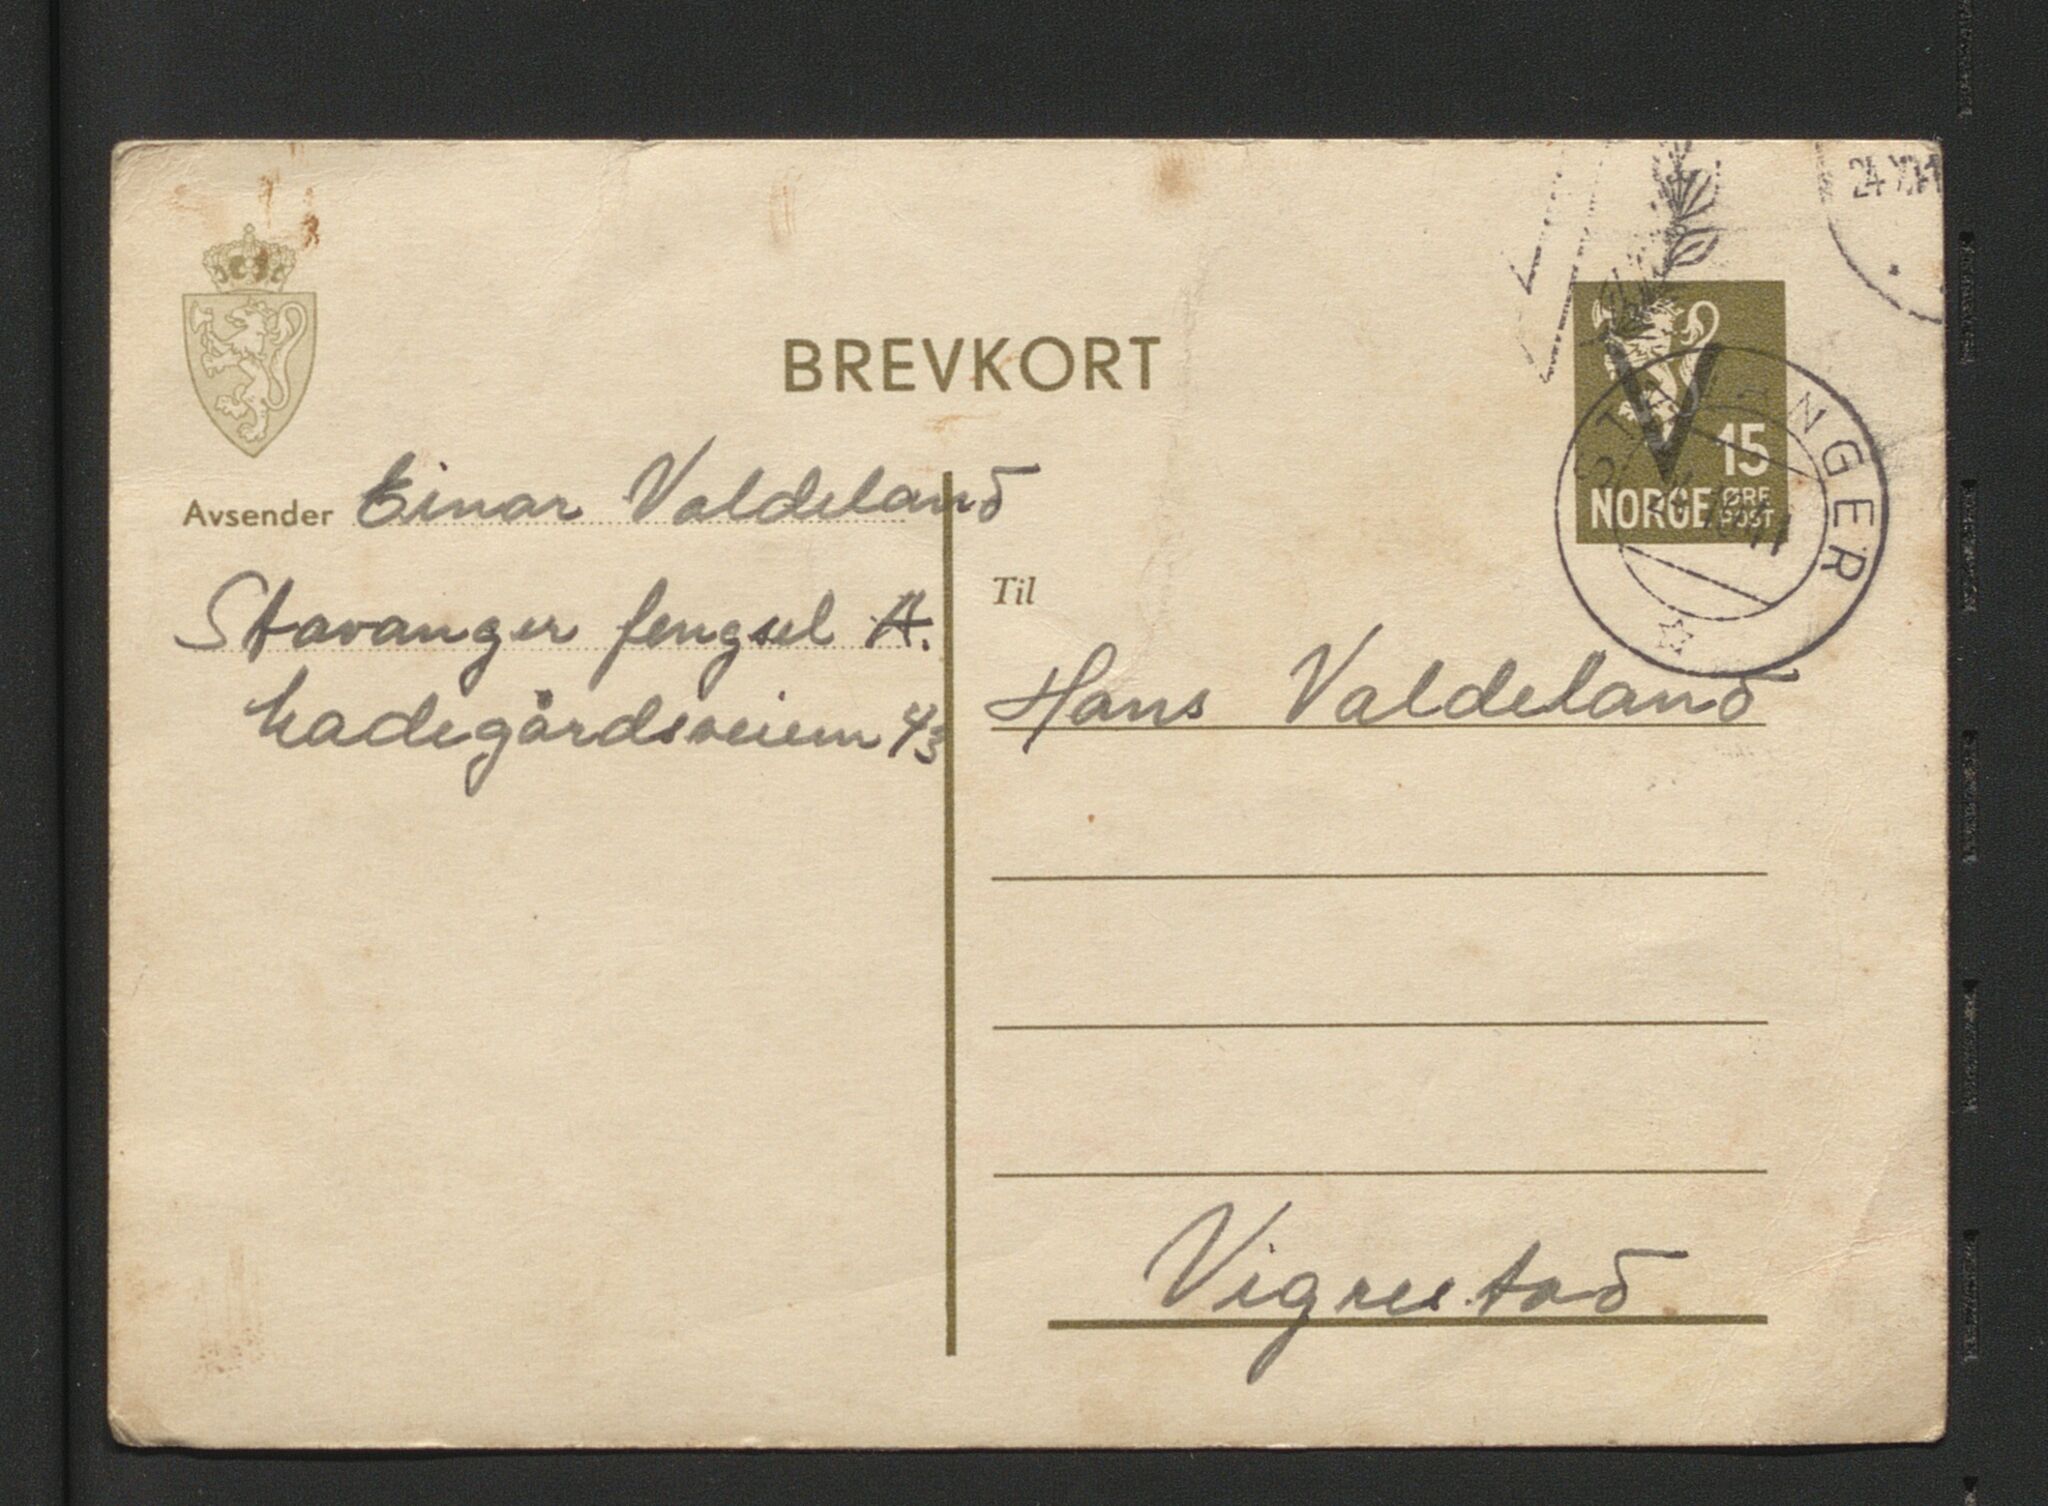 24 XII 41
BREVKORT
V
15
NORGE ØRE POST
STAVANGER
Avsender Einar Valdeland
Stavanger fengsel A.
Ladegårdsveien 43
Til
Hans Valdeland
Vigrestad